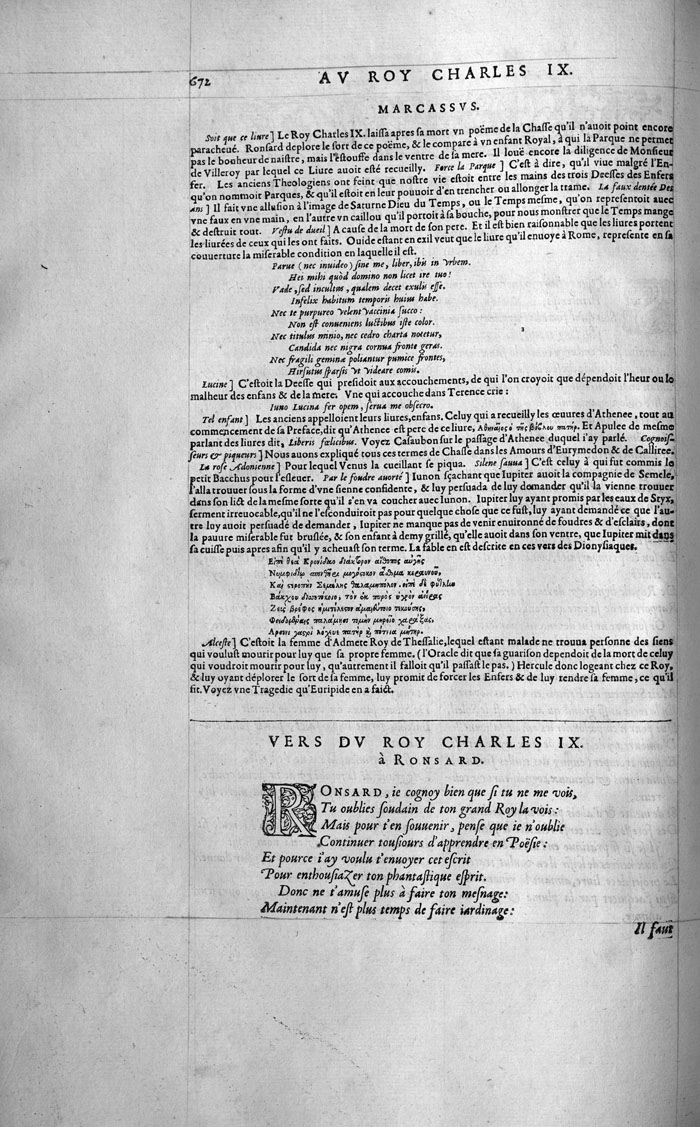 672
AV ROY CHARLES IX.
MARCASSVS.
Soit que ce liure] Le Roy Charles IX. laissa apres sa mort vn poëme de la Chasse qu'il n'auoit point encore
paracheué. Ronsard deplore le sort de ce poëme, & le compare à vn enfant Royal, à qui la Parque ne permet
pas le bonheur de naistre, mais l'estouffe dans le ventre de sa mere. Il louë encore la diligence de Monsieur
de Villeroy par lequel ce Liure auoit esté recueilly. Force la Parque] C'est à dire, qu'il viue malgré l'En-
fer. Les anciens Theologiens ont feint que nostre vie estoit entre les mains des trois Deesses des Enfers
qu'on nommoit Parques, & qu'il estoit en leur pouuoir d'en trencher ou allonger la trame. La faux dentée Des
ans] Il fait vne allusion à l'image de Saturne Dieu du Temps, ou le Temps mesme, qu'on representoit auec
vne faux en vne main, en l'autre vn caillou qu'il portoit à sa bouche, pour nous monstrer que le Temps mange
& destruit tout. Vestu de dueil] A cause de la mort de son pere. Et il est bien raisonnable que les liures portent
les liurées de ceux qui les ont faits. Ouide estant en exil veut que le liure qu'il enuoye à Rome, represente en sa
couuerture la miserable condition en laquelle il est.
Parue (nec inuideo) sine me, liber, ibis in vrbem.
Hei mihi quòd domino non licet ire tuo!
Vade, sed incultus, qualem decet exulis esse.
Infelix habitum temporis huius habe.
Nec te purpureo velent vaccinia succo:
Non est conueniens luctibus iste color.
Nec titulus minio, nec cedro charta notetur,
Candida nec nigra cornua fronte geras.
Nec fragili geminæ poliantur pumice frontes,
Hirsutus sparsis vt videare comis.
Lucine] C'estoit la Deesse qui presidoit aux accouchemens, de qui l'on croyoit que dépendoit l'heur ou lo
malheur des enfans & de la mere. Vne qui accouche dans Terence crie:
Iuno Lucina fer opem, serua me obsecro.
Tel enfant] Les anciens appelloient leurs liures, enfans. Celuy qui a recueilly les œuures d'Athenee, tout au
commencement de sa Preface, dit qu'Athenee est pere de ce liure, Et Apulee de mesme
parlant des liures dit, Liberis fœlicibus. Voyez Casaubon sur le passage d'Athenee duquel i'ay parlé. Cognois-
seurs & piqueurs] Nous auons expliqué tous ces termes de Chasse dans les Amours d'Eurymedon & de Callirée.
La rose Adonienne] Pour lequel Venus la cueillant se piqua. Silene sauua] C'est celuy à qui fut commis le
petit Bacchus pour l'esleuer. Par le foudre auorté] Iunon sçachant que Iupiter auoit la compagnie de Semele,
l'alla trouuer sous la forme d'vne sienne confidente, & luy persuada de luy demander qu'il la vienne trouuer
dans son lict de la mesme sorte qu'il s'en va coucher auec Iunon. Iupiter luy ayant promis par les eaux de Styx,
serment irreuocable, qu'il ne l'esconduiroit pas pour quelque chose que ce fust, luy ayant demandé ce que l'au-
tre luy auoit persuadé de demander, Iupiter ne manque pas de venir enuironné de foudres & d'esclairs, dont
la pauure miserable fut bruslée, & son enfant à demy grillé, qu'elle auoit dans son ventre, que Iupiter mit dans
sa cuisse puis apres afin qu'il y acheuast son terme. La fable en est descrite en ces vers des Dionysiaques.
Alceste] C'estoit la femme d'Admete Roy de Thessalie, lequel estant malade ne trouua personne des siens
qui voulust mourir pour luy que sa propre femme. (l'Oracle dit que sa guarison dependoit de la mort de celuy
qui voudroit mourir pour luy, qu'autrement il falloit qu'il passast le pas.) Hercule donc logeant chez ce Roy,
& luy oyant déplorer le sort de sa femme, luy promit de forcer les Enfers & de luy rendre sa femme, ce qu'il
fit. Voyez vne Tragedie qu'Euripide en a faict.
VERS DV ROY CHARLES IX.
à RONSARD.
RONSARD, ie cognoy bien que si tu ne me vois,
Tu oublies soudain de ton grand Roy la vois:
Mais pour t'en souuenir, pense que ie n'oublie
Continuer tousiours d'apprendre en Poësie:
Et pource i'ay voulu t'enuoyer cet escrit
Pour enthousiazer ton phantastique esprit.
Donc ne t'amuse plus à faire ton mesnage:
Maintenant n'est plus temps de faire iardinage:
Il faut